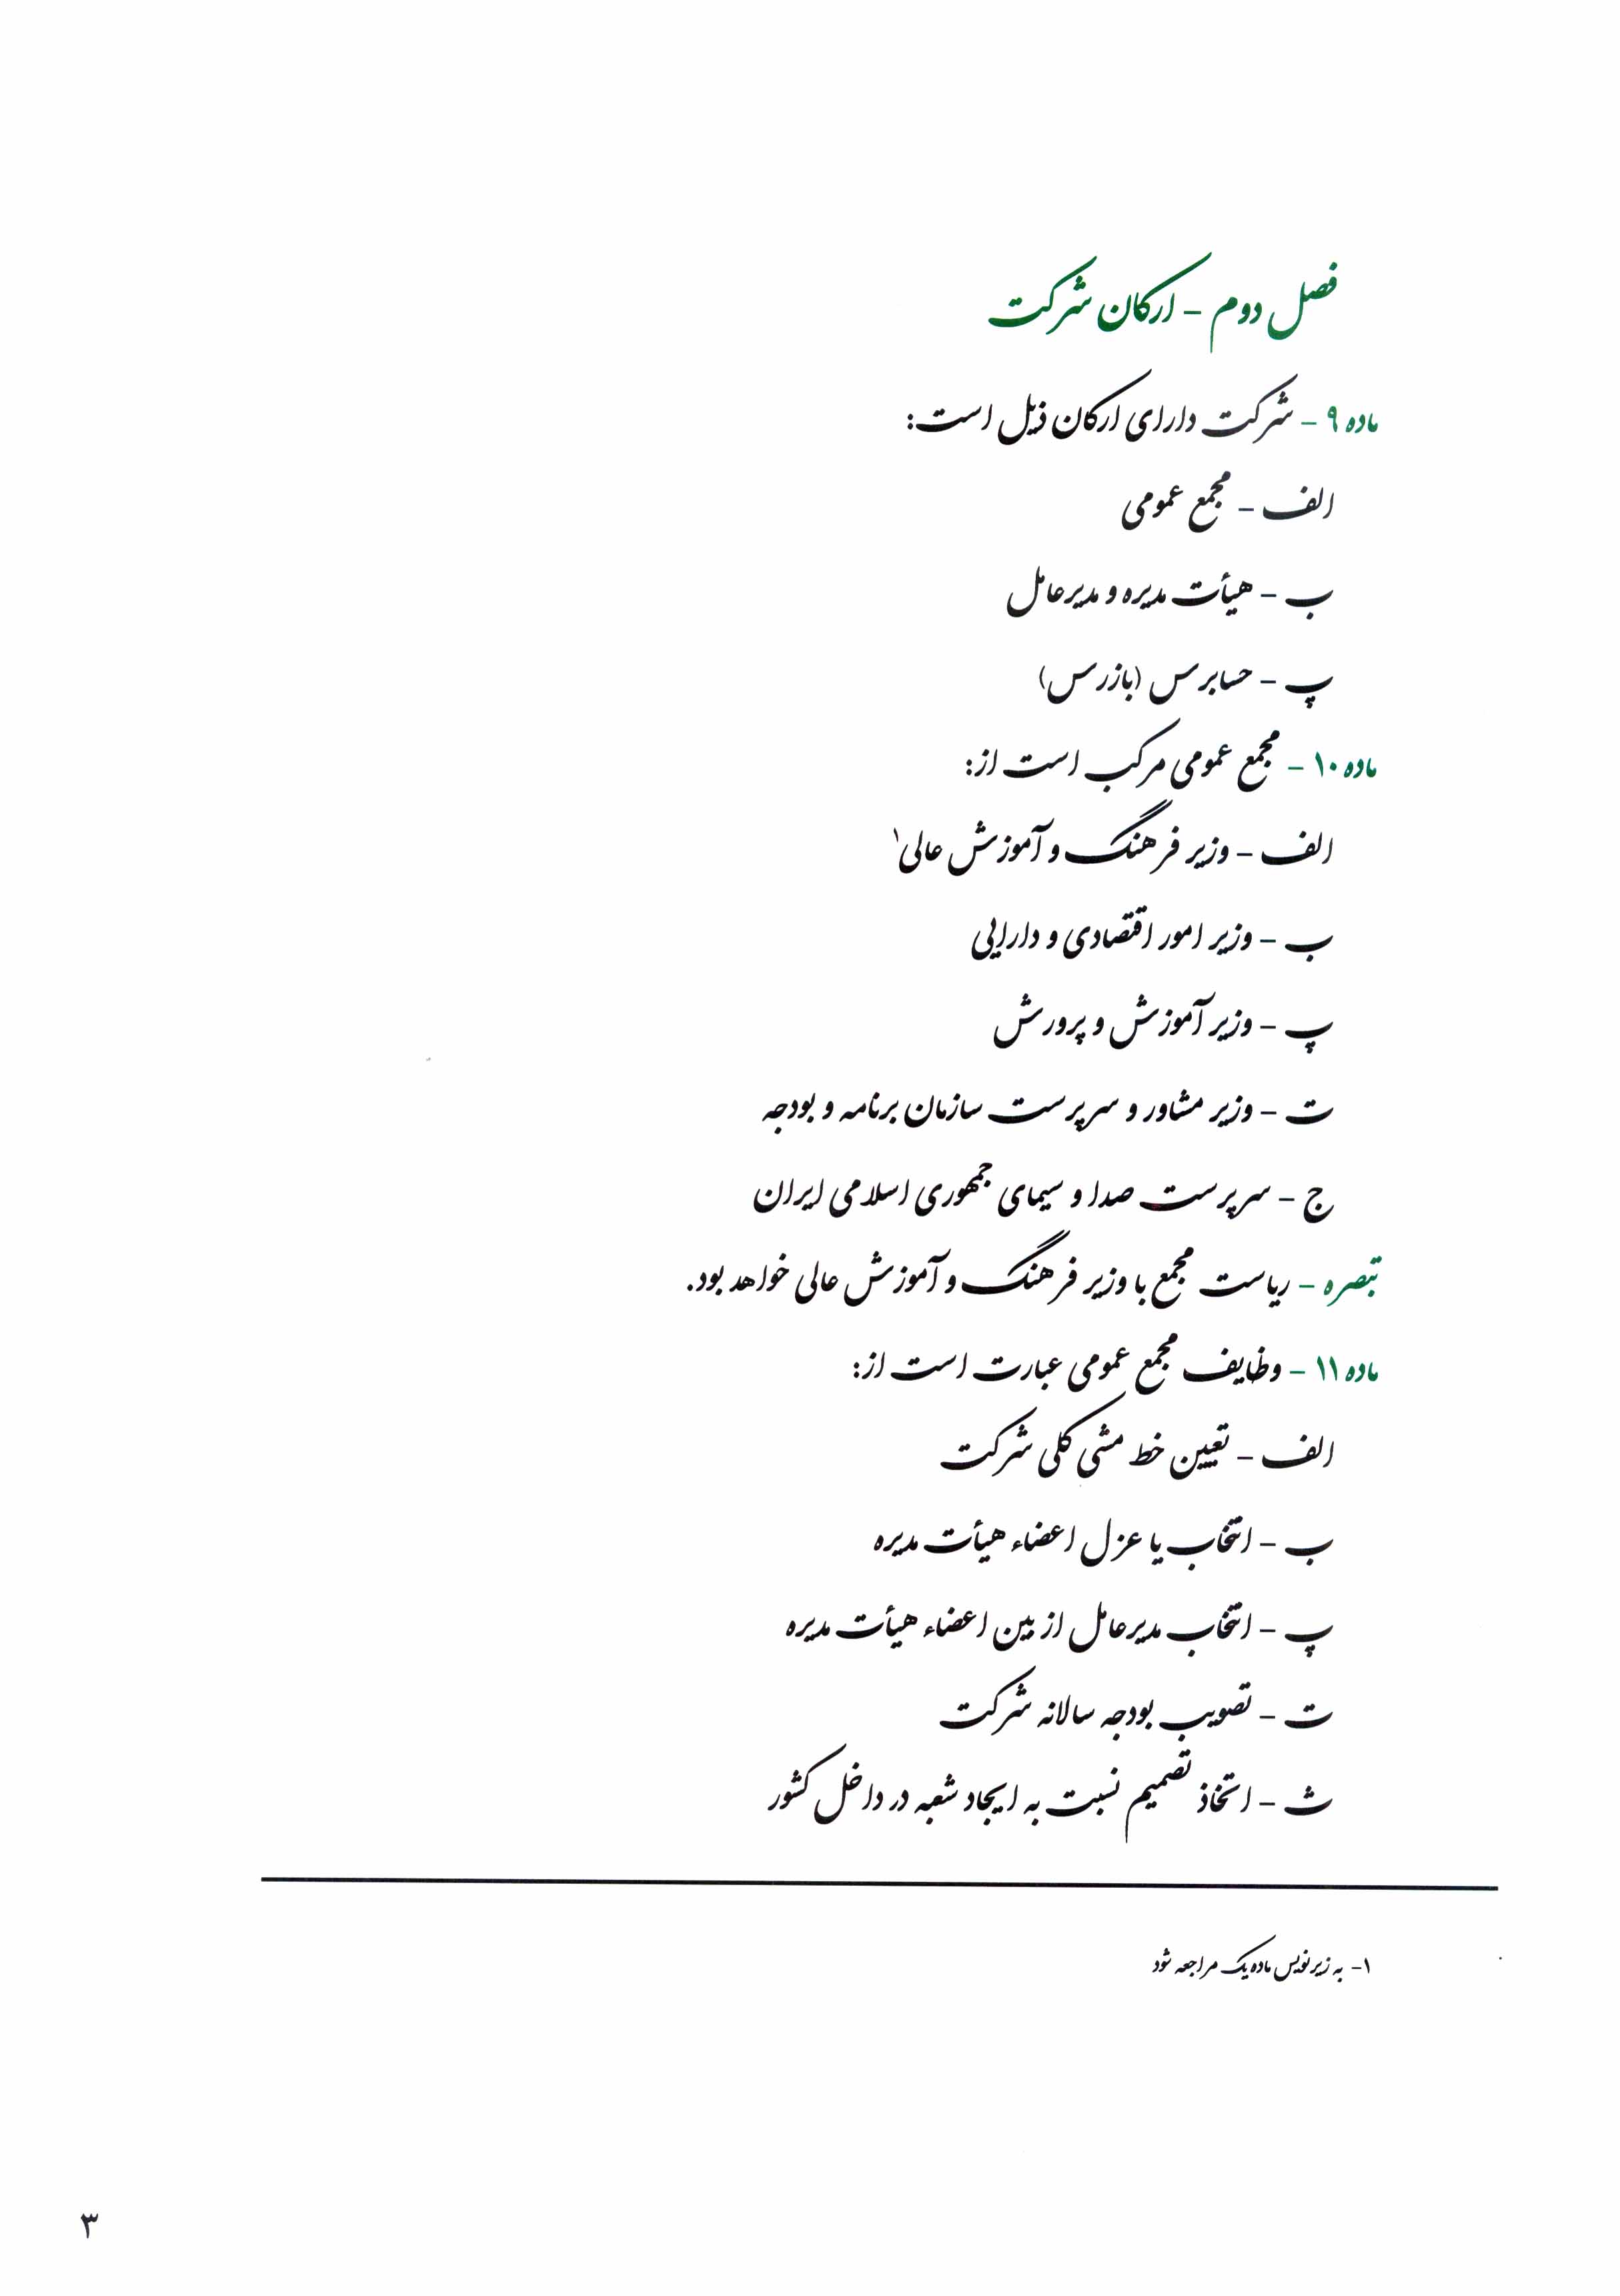 فصل دوم – ارکان شرکت
ماده ۹ – شرکت دارای ارکان ذیل است:
الف – مجمع عمومی
ب – هیأت مدیره و مدیرعامل
پ – حسابرس (بازرس)
ماده ۱۰ – مجمع عمومی مرکب است از:
الف – وزیر فرهنگ و آموزش عالی۱
ب – وزیر امور اقتصادی و دارایی
پ – وزیر آموزش و پرورش
ت – وزیر مشاور و سرپرست سازمان برنامه و بودجه
ج – سرپرست صدا و سیمای جمهوری اسلامی ایران
تبصره – ریاست مجمع با وزیر فرهنگ و آموزش عالی خواهد بود.
ماده ۱۱ – وظایف مجمع عمومی عبارت است از:
الف – تعیین خط مشی کلی شرکت
ب – انتخاب یا عزل اعضاء هیأت مدیره
پ – انتخاب مدیرعامل از بین اعضاء هیأت مدیره
ت – تصویب بودجه سالانه شرکت
ث – اتخاذ تصمیم نسبت به ایجاد شعبه در داخل کشور
۱– به زیرنویس ماده یک مراجعه شود
۳